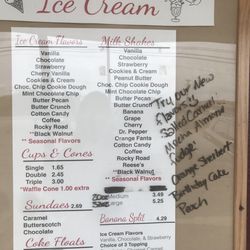 Ice Cream
Ice Cream Flavors
Vanilla
Chocolate
Strawberry
Cherry Vanilla
Cookies & Cream
Choc. Chip Cookie Dough
Mint Chocolate Chip
Butter Pecan
Cotton Candy
Coffee
Rocky Road
**Black Walnut
** Seasonal Flavors
Cups & Cones
Single 1.65
Double 2.45
Triple 3.00
*Waffle Cone 1.00 extra
Sundaes 2.69
Caramel
Butterscotch
Chocolate
Coke Floats
Milk Shakes
Vanilla
Chocolate
Strawberry
Cookies & Cream
Peanut Butter
Choc. Chip Cookie Dough
Mint Chocolate Chip
Butter Pecan
Butter Crunch
Banana
Grape
Cherry
Dr. Pepper
Orange Fanta
Cotton Candy
Coffee
Rocky Road
Reese's
**Black Walnut
** Seasonal Flavors
Medium 3.49
Large 5.25
Banana Split 4.29
Ice Cream Flavors
Vanilla, Chocolate & Strawberry
Choice of 3 Topping
Try our New
Flavors
Salted Caramel
Mocha Almond
Fudge
Orange Sherbert
Birthday Cake
Peach